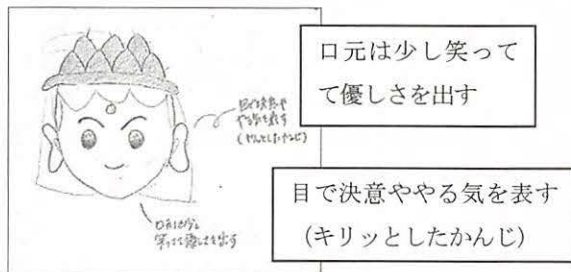 目で決意や
やる気を表す
(キリッとしたかんじ)
口元は少し
笑って優しさを出す
口元は少し笑って
て優しさを出す
目で決意ややる気を表す
(キリッとしたかんじ)